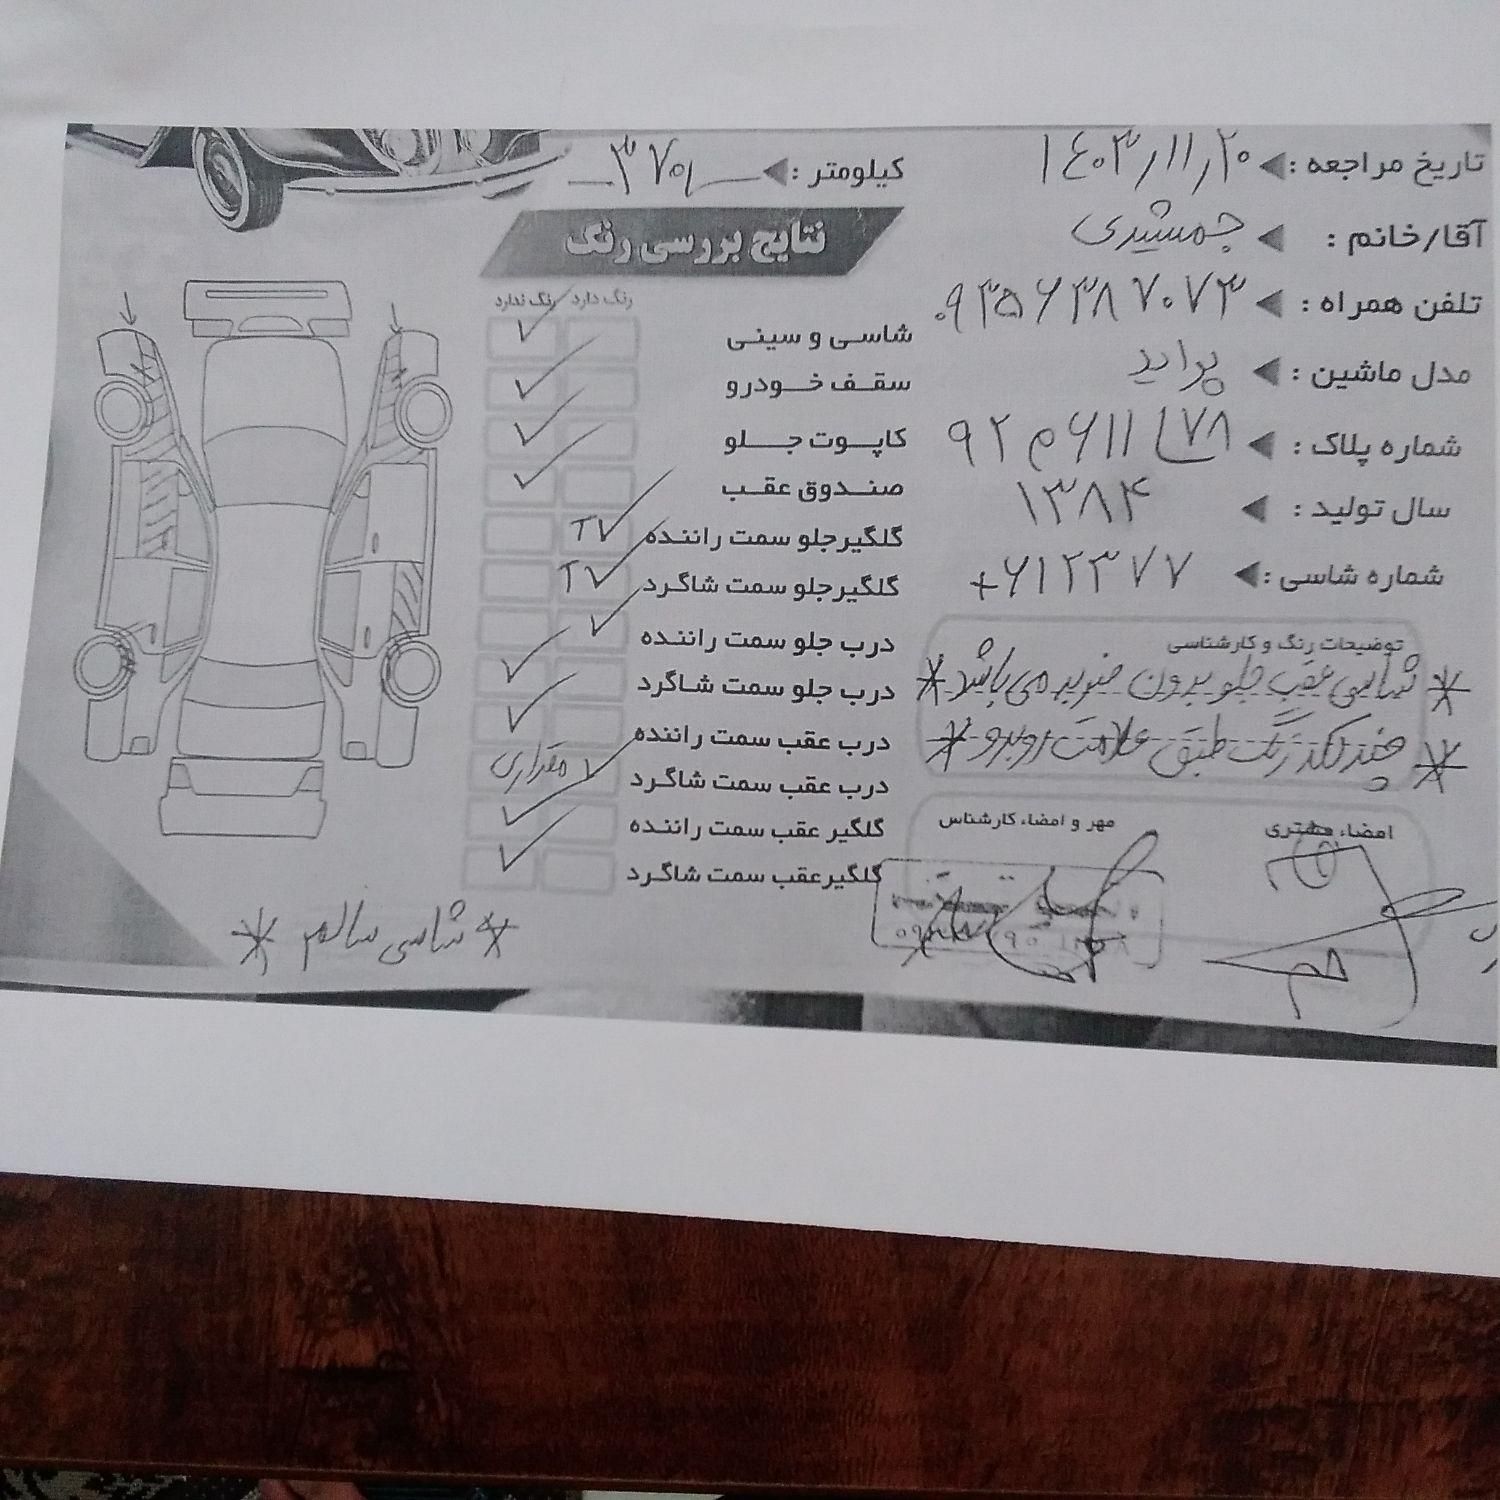 تاریخ مراجعه : ۱۴۰۳/۱۱/۲۰
آقا/خانم : جمشیدی
تلفن همراه : ۰۹۳۵۶۳۸۷۰۷۳
مدل ماشین : پراید
شماره پلاک : ۷۸ ل ۶۱۱ م ۹۲
سال تولید : ۱۳۸۴
شماره شاسی : ۶۱۲۳۷۷+
توضیحات رنگ و کارشناسی
* شاسی عقب جلو بدون ضربه می باشد *
* چند لکه رنگ طبق علامت روبرو *
امضاء مشتری
مهر و امضاء کارشناس
کیلومتر :
نتایج بررسی رنگ
رنگ دارد رنگ ندارد
شاسی و سینی ✓
سقف خودرو ✓
کاپوت جلو ✓
صندوق عقب ✓
گلگیر جلو سمت راننده ✓
گلگیر جلو سمت شاگرد ✓
درب جلو سمت راننده ✓
درب جلو سمت شاگرد ✓
درب عقب سمت راننده ✓
درب عقب سمت شاگرد ✓ مقداری
گلگیر عقب سمت راننده ✓
گلگیر عقب سمت شاگرد ✓
* شاسی سالم *